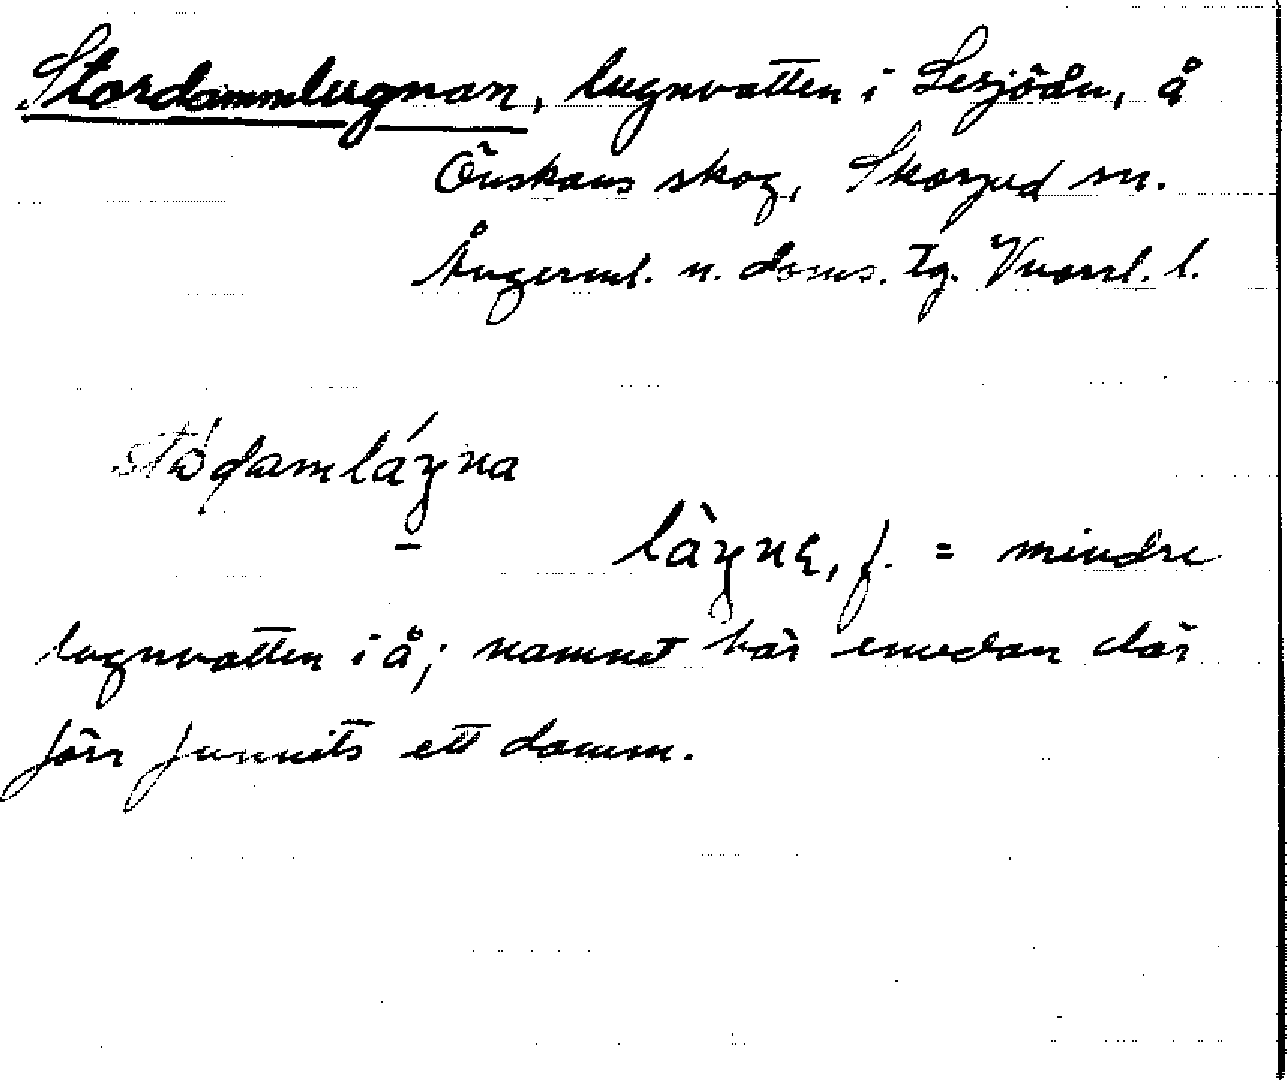 Stordammlugnan, lugnvatten i Lesjöån, å
Önskans skog, Skorped sn.
Ångerml. n. doms. tg. Vnorrl. l.
stódamláŋna
làŋnɛ, f. = mindre
lugnvatten i å; namnet här emedan där
förr funnits ett damm.